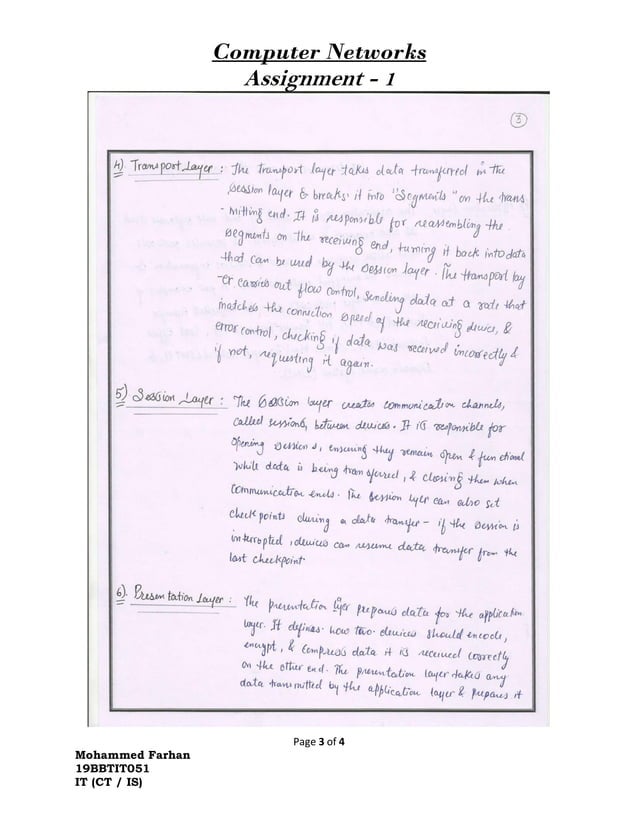 Computer Networks
Assignment - 1
3
4) Transport Layer : The transport layer takes data transferred in the
session layer & breaks it into "Segments" on the trans
- mitting end. It is responsible for reassembling the
segments on the receiving end, turning it back into data
that can be used by the session layer. The transport lay
-er carries out flow control, sending data at a rate that
matches the connection speed of the receiving device, &
error control, checking if data was received incorrectly &
if not, requesting it again.
5) Session Layer : The Session layer creates communication channels,
called sessions, between devices. It is responsible for
opening sessions, ensuring they remain open & functional
while data is being transferred, & closing them when
communication ends. The session layer can also set
checkpoints during a data transfer - if the session is
interrupted, devices can resume data transfer from the
last checkpoint.
6). Presentation Layer : The presentation layer prepares data for the application
layer. It defines how two devices should encode,
encrypt, & compress data it is received correctly
on the other end. The presentation layer takes any
data transmitted by the application layer & prepares it
Page 3 of 4
Mohammed Farhan
19BBTIT051
IT (CT / IS)